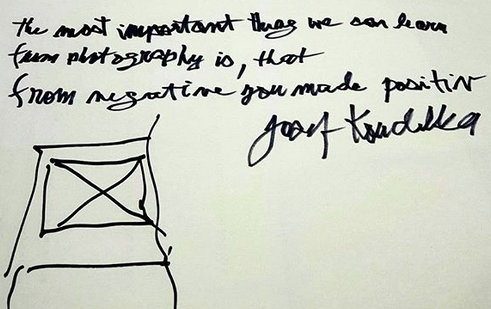 the most important thing we can learn
from photography is, that
from negative you made positiv
Josef Koudelka